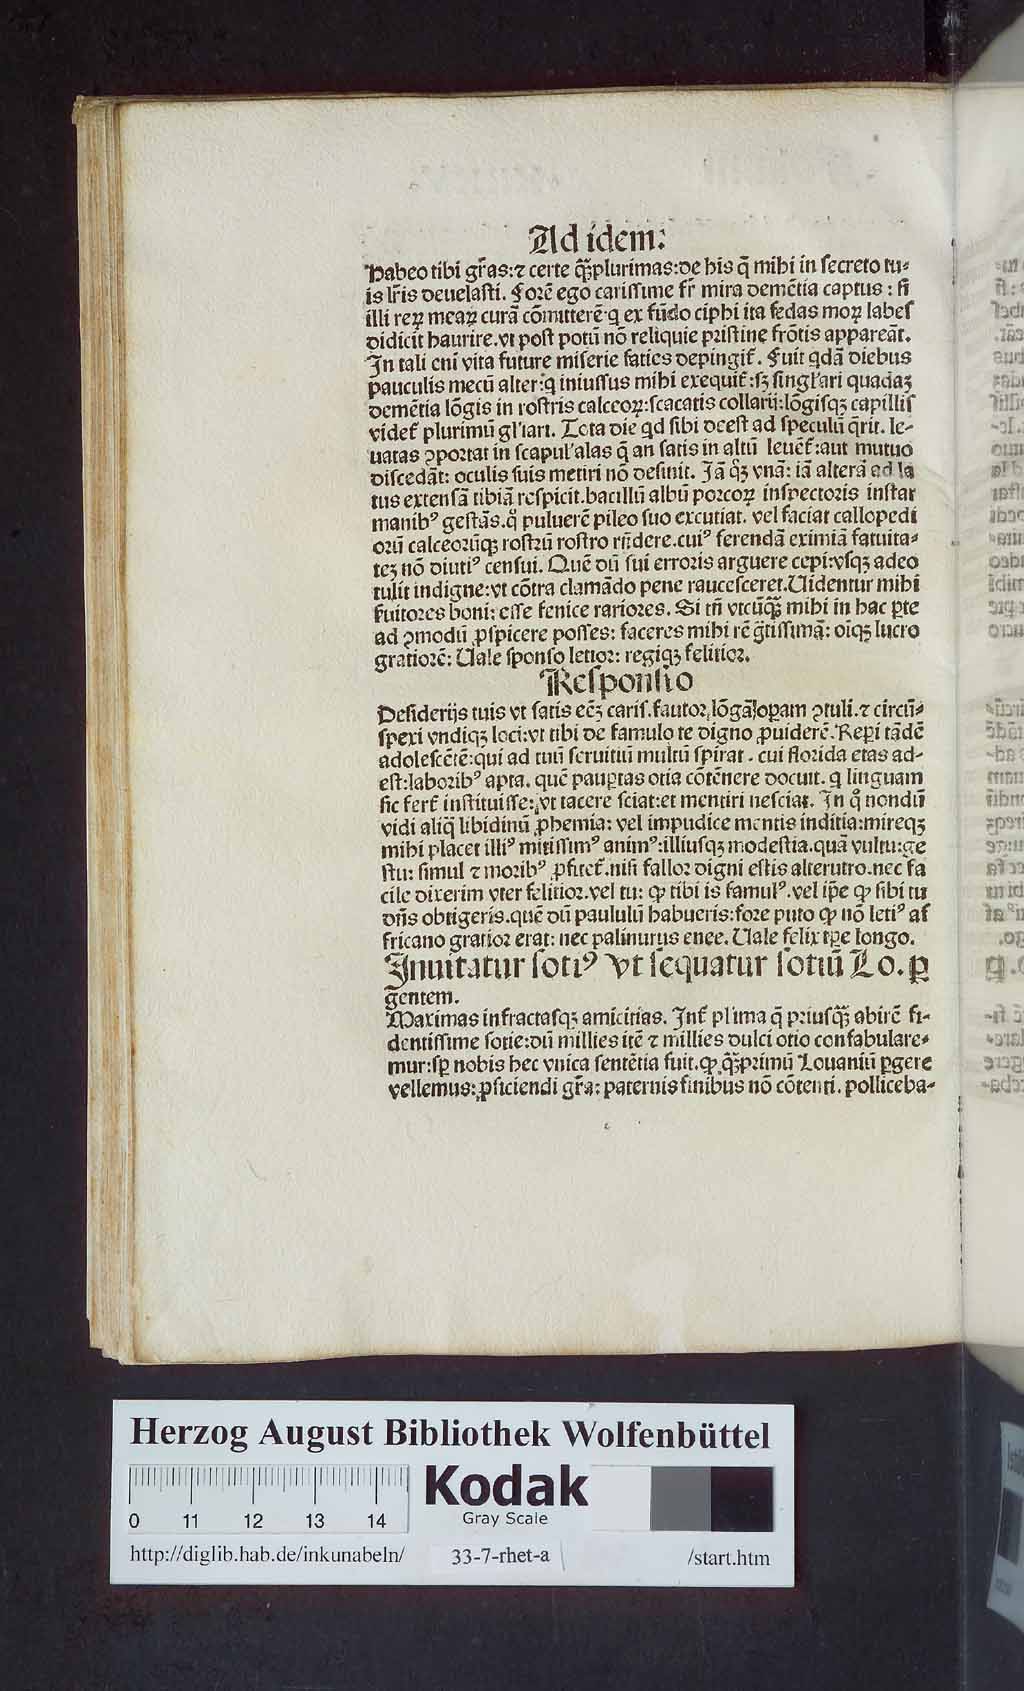 Ad idem:
Habeo tibi gr̃as:⁊ certe q̃ꝫplurimas:de his q̃ mihi in secreto tu⸗
is lr̃is deuelasti. Forẽ ego carissime fr̃ mira demẽtia captus : si
illi reꝝ meaꝝ curã cõmitterẽ·q ex fũdo ciphi ita fedas moꝝ labes
didicit haurire.vt post potũ nõ reliquie pristine frõtis appareãt.
In tali eni vita future miserie facies depingit̃. Fuit qdã diebus
pauculis mecũ alter:q̇ iniussus mihi exequit̃:sꝫ singl'ari quadaꝫ
demẽtia lõgis in rostris calceoꝝ:scacatis collarij:lõgisqꝫ capillis
videt̃ plurimũ gl'iari. Tota die qd sibi deest ad speculũ q̃rit. le⸗
uatas ꝯportat in scapul'alas q̃ an satis in altũ leuẽt̃:aut mutuo
discedãt: oculis suis metiri nõ desinit. Jã q̇ꝫ vnã: iã alterã ad la
tus extensã tibiã respicit.bacillũ albũ porcoꝝ inspectoris instar
manibꝰ gestãs.q̊ puluerẽ pileo suo excutiat. vel faciat callopedi
orũ calceorũqꝫ rostrũ rostro rũdere.cuiꝰ ferendã eximiã fatuita⸗
teꝫ nõ diutiꝰ censui. Quẽ dũ sui erroris arguere cepi:vsqꝫ adeo
tulit indigne:vt cõtra clamãdo pene raucesceret.Uidentur mihi
fuitores boni: esse fenice rariores. Si tñ vtcũq̃ꝫ mihi in hac ꝑte
ad ꝯmodũ ꝓspicere posses: faceres mihi rẽ g̃tissimã: oĩqꝫ lucro
gratiorẽ: Uale sponso letior: regiqꝫ felitior.
Responsio
Desiderijs tuis vt satis eẽꝫ caris.fautor lõgã oꝑam ꝯtuli.⁊ circũ⸗
spexi vndiqꝫ loci:vt tibi de famulo te digno ꝓuiderẽ.Reꝑi tãdẽ
adolescẽtẽ:qui ad tuũ seruitiũ multũ spirat . cui florida etas ad⸗
est:laboribꝰ apta. quẽ pauꝑtas otia cõtẽnere docuit. q linguam
sic fert̃ instituisse: vt tacere sciat:et mentiri nesciat. In q̊ nondũ
vidi aliq̃ libidinũ ꝓhemia: vel impudice mentis inditia:mireqꝫ
mihi placet illiꝰ mitissimꝰ animꝰ:illiusqꝫ modestia.quã vultu:ge
stu: simul ⁊ moribꝰ ꝓfitet̃.nisi fallor digni estis alterutro.nec fa
cile dixerim vter felitior.vel tu: ꝙ tibi is famulꝰ.vel ip̃e ꝙ sibi tu
dñs obtigeris.quẽ dũ paululũ habueris:fore puto ꝙ nõ letiꝰ af
fricano gratior erat: nec palinurus enee. Uale felix tꝑe longo.
Inuitatur sotiꝰ vt sequatur sotiũ Lo. ꝑ
gentem.
Maximas infractasqꝫ amicitias. Int̃ pl'ima q̃ priusq̃ꝫ abirẽ fi⸗
dentissime sotie:dũ millies itẽ ⁊ millies dulci otio confabulare⸗
mur:sꝑ nobis hec vnica sentẽtia fuit.ꝙ q̃ꝫprimũ Louaniũ ꝑgere
vellemus:ꝓficiendi gr̃a: paternis finibus nõ cõtenti. polliceba⸗
Herzog August Bibliothek Wolfenbüttel
Kodak
Gray Scale
0 11 12 13 14
http://diglib.hab.de/inkunabeln/ 33-7-rhet-a /start.htm